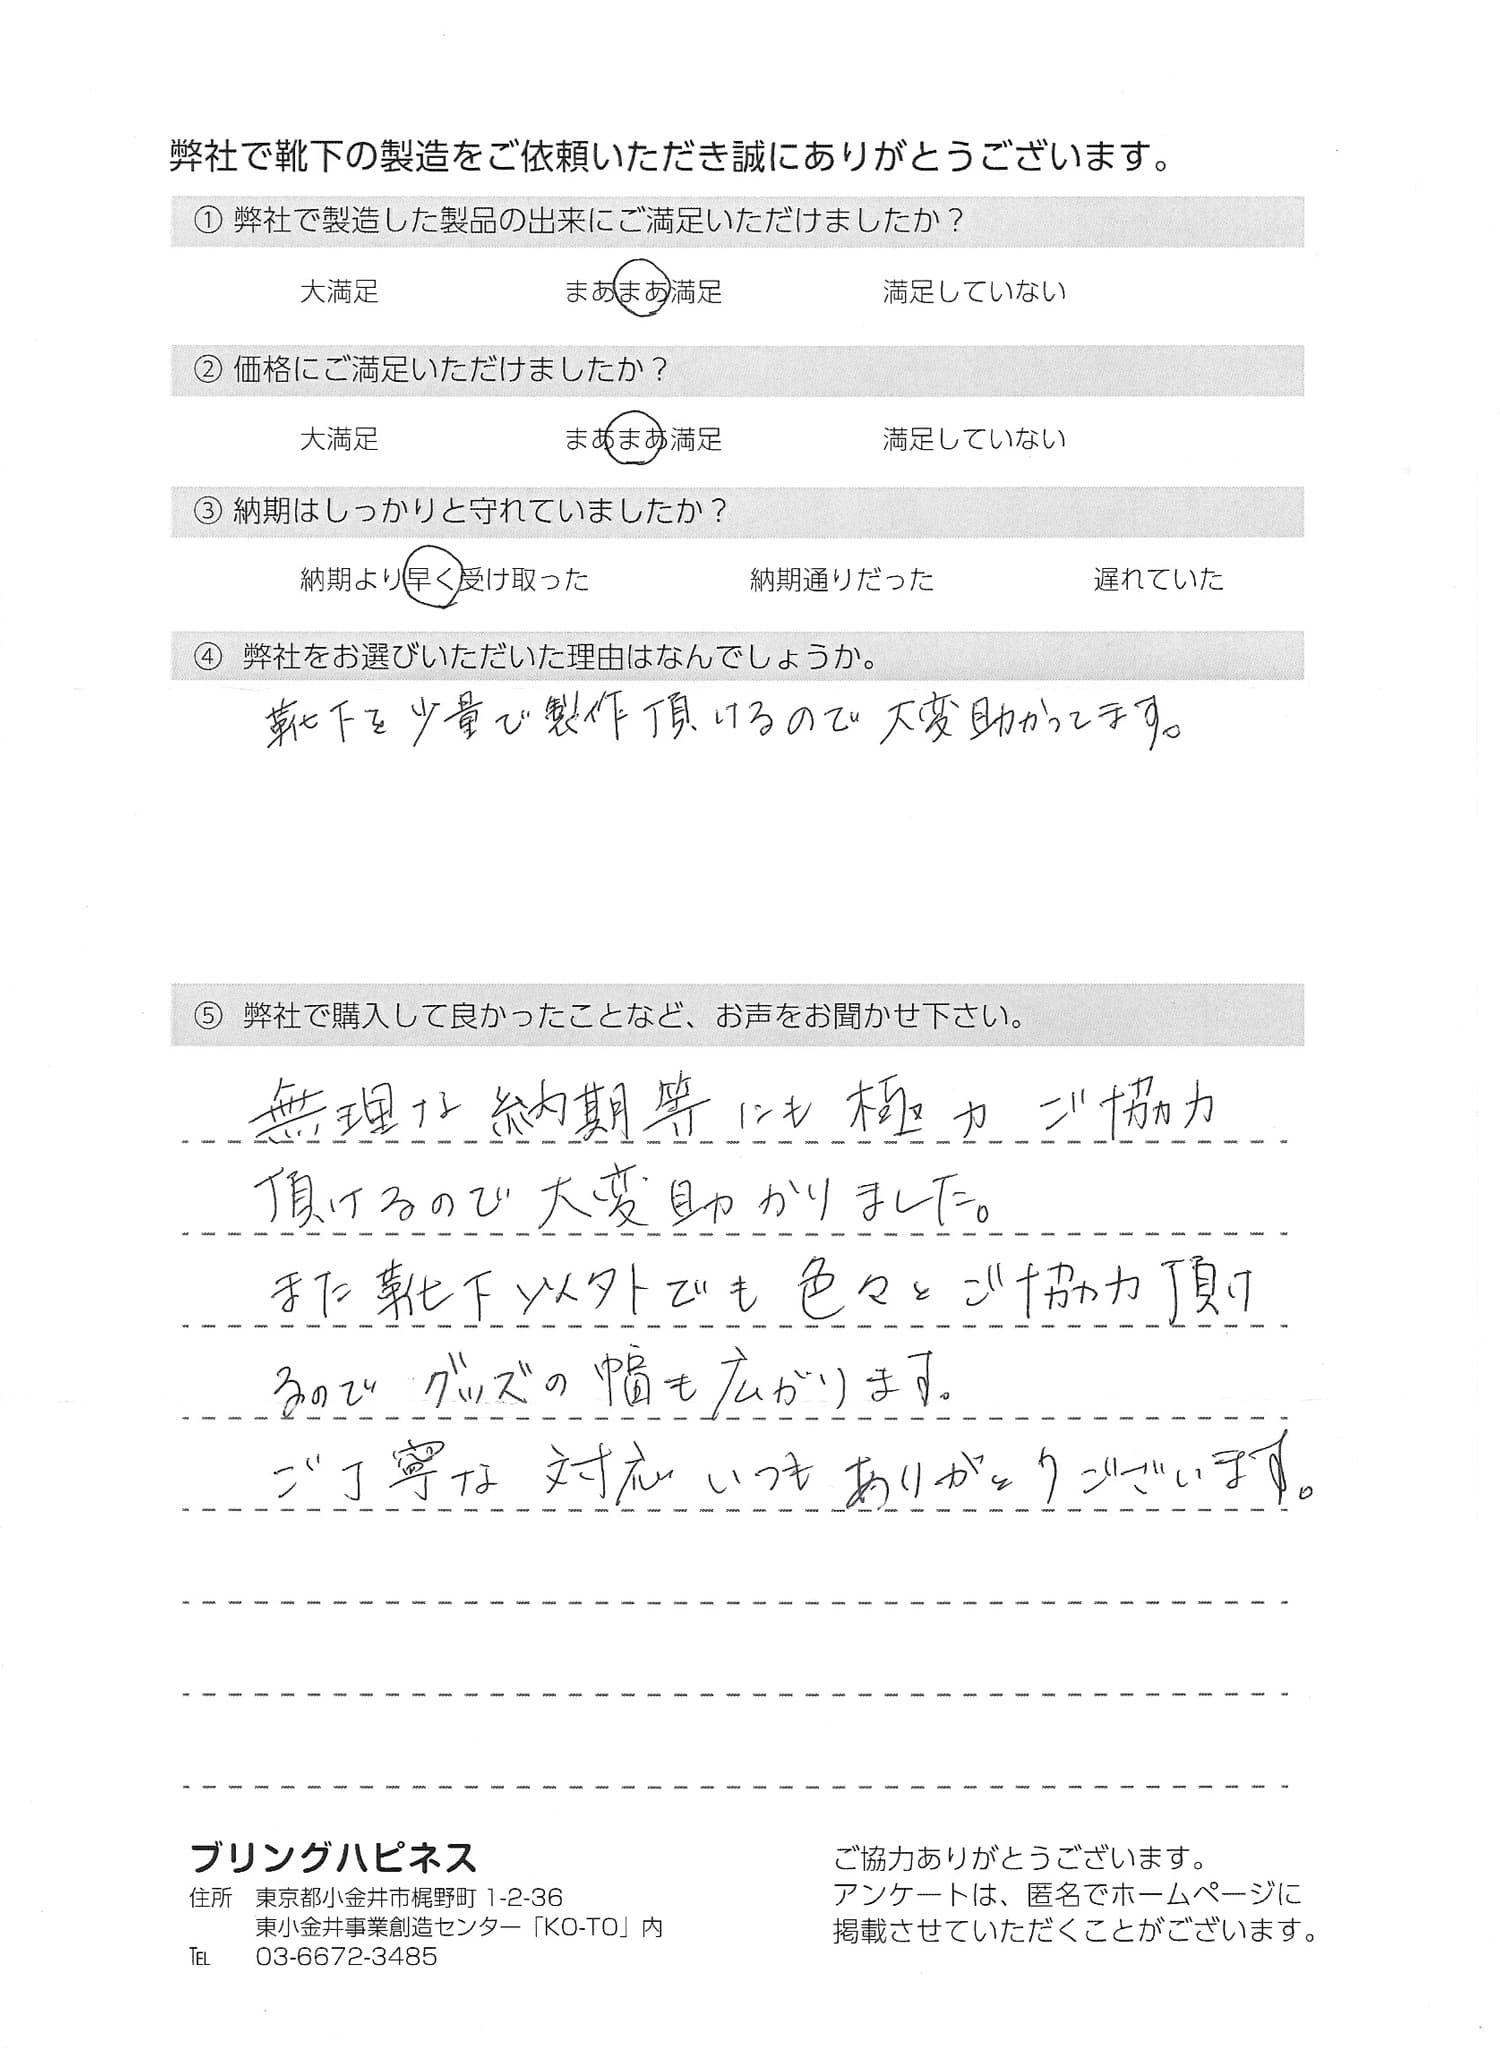 弊社で靴下の製造をご依頼いただき誠にありがとうございます。
① 弊社で製造した製品の出来にご満足いただけましたか？
大満足 まあまあ満足 満足していない
② 価格にご満足いただけましたか？
大満足 まあまあ満足 満足していない
③ 納期はしっかりと守れていましたか？
納期より早く受け取った 納期通りだった 遅れていた
④ 弊社をお選びいただいた理由はなんでしょうか。
靴下を少量で製作頂けるので大変助かってます。
⑤ 弊社で購入して良かったことなど、お声をお聞かせ下さい。
無理な納期等にも極力ご協力
頂けるので大変助かりました。
また靴下以外でも色々とご協力頂け
るのでグッズの幅も広がります。
ご丁寧な対応いつもありがとうございます。
ブリングハピネス
住所 東京都小金井市梶野町 1-2-36
東小金井事業創造センター「KO-TO」内
TEL 03-6672-3485
ご協力ありがとうございます。
アンケートは、匿名でホームページに
掲載させていただくことがございます。